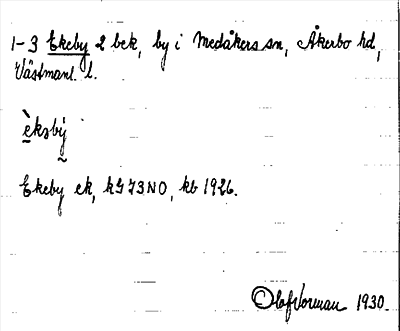 1-3 Ekeby 2 bek, by i Medåkers sn, Åkerbo hd,
Västmanl. l.
èksbý
Ekeby ek, kG73NO, kb 1926.
Olof Vorman 1930.